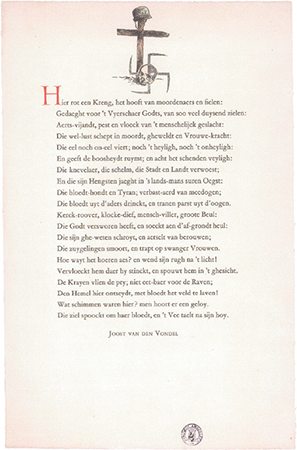 Hier rot een Kreng, het hooft van moordenaers en fielen:
Gedaght voor 't Vyerschaer Godts, van soo veel duysend zielen:
Aerts-vijandt, pest en vloeck van 't menschelijck geslacht:
Die wel-lust schept in moordt, gheweldt en Vrouwe-kracht:
Die eel noch on-eel viert; noch 't heyligh, noch 't onheyligh:
En geeft de boosheydt ruymt; en acht het schenden veyligh:
Die knevelaer, die schelm, die Stadt en Landt verwoest;
En die sijn Hengsten jaeght in 's lands-mans suren Oegst:
Die bloedt-hondt en Tyran; verbast-aerd van meedogen;
Die bloedt uyt d'aders drinckt, en tranen parst uyt d'oogen.
Kerck-roover, klocke-dief, mensch-viller, groote Beul:
Die Godt versworen heeft, en soeckt aen d'af-grondt heul:
Die sijn ghe-weten schroyt, en aerselt van berouwen;
Die zuygelingen smoort, en trapt op swanger Vrouwen.
Hoe wayt het hooren aes? en wend sijn rugh na 't licht!
Vervloeckt hem daer hy stinckt, en spouwt hem in 't ghesicht.
De Krayen vlien de pry; niet eet-baer voor de Raven;
Den Hemel hier ontseydt, met bloedt het veld te laven!
Wat schimmen waren hier? men hoort er een geloy.
Die ziel spoockt om haer bloedt, en 't Vee taelt na sijn hoy.
Joost van den Vondel